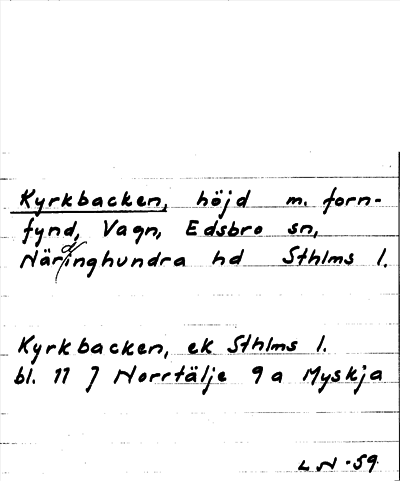 Kyrkbacken, höjd m. forn-
fynd, Vagn, Edsbro sn,
Närdinghundra hd Sthlms l.
Kyrkbacken, ek Sthlms l.
bl. 11 J Norrtälje 9a Myskja
LN -59